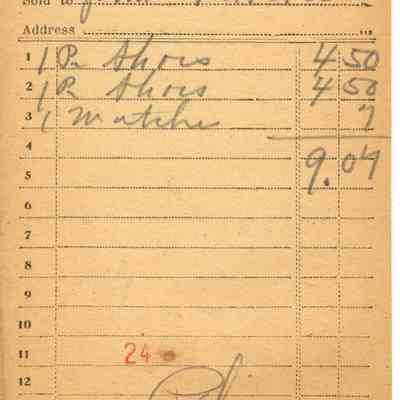 Sold to
Address
1 1 Pr Shoes 4 50
2 1 Pr Shoes 4 50
3 1 Matches 7
4
5 9.07
6
7
8
9
10
11 24
12